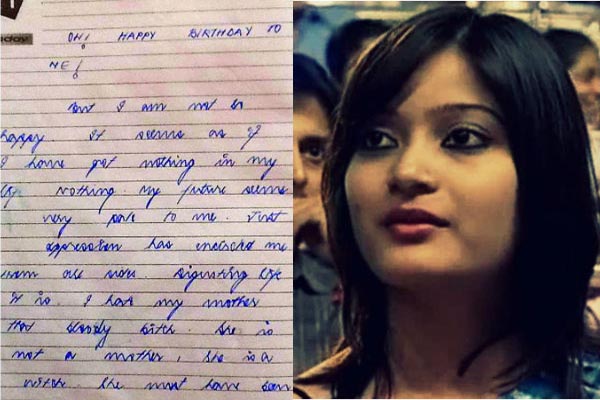 OH! HAPPY BIRTHDAY TO
ME!
But I am not so
happy. It seems as if
I have got nothing in my
Nothing my future seems
very to me. Just
has encircled me
Disgusting life
it is. I hate my mother
that bloody bitch. She is
not a mother, she is a
witch. She must have been